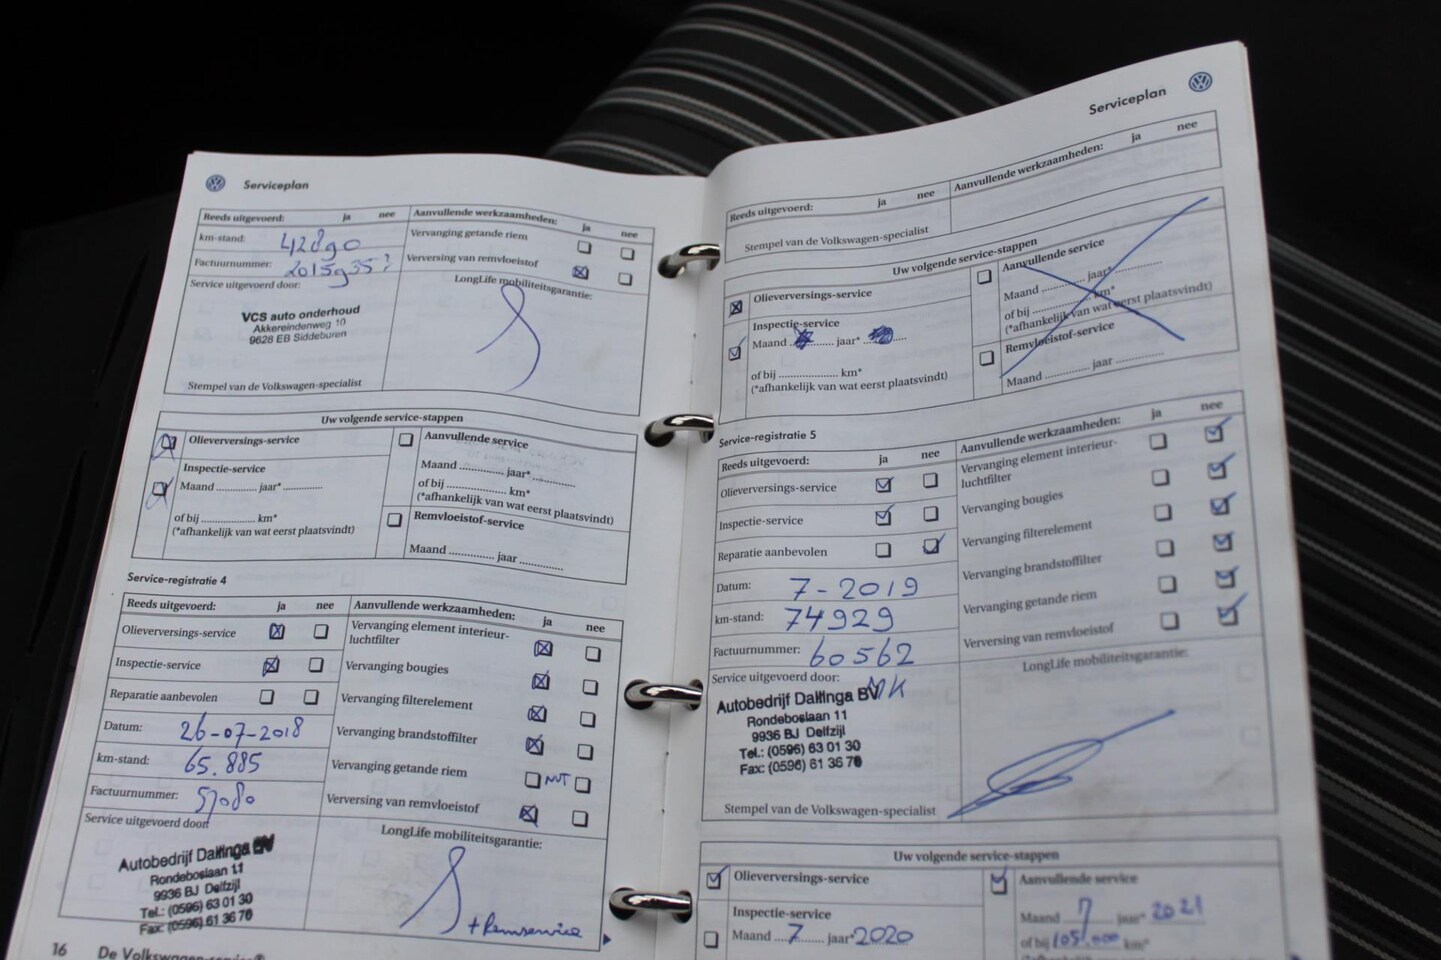 Serviceplan
Reeds uitgevoerd: ja nee
Aanvullende werkzaamheden: ja nee
km-stand: 42890
Vervanging getande riem
Factuurnummer:
Verversing van remvloeistof
Service uitgevoerd door:
LongLife mobiliteitsgarantie:
VCS auto onderhoud
Akkereindenweg 10
9628 EB Siddeburen
Stempel van de Volkswagen-specialist
Uw volgende service-stappen
Olieverversings-service
Aanvullende service
Inspectie-service
Maand .............. jaar* ..............
Maand .............. jaar* ..............
of bij .............. km*
(*afhankelijk van wat eerst plaatsvindt)
of bij .............. km*
(*afhankelijk van wat eerst plaatsvindt)
Remvloeistof-service
Maand .............. jaar ..............
Service-registratie 4
Reeds uitgevoerd: ja nee
Aanvullende werkzaamheden: ja nee
Olieverversings-service
Vervanging element interieur-
luchtfilter
Inspectie-service
Vervanging bougies
Reparatie aanbevolen
Vervanging filterelement
Datum: 26-07-2018
Vervanging brandstoffilter
km-stand: 65.885
Vervanging getande riem NVT
Factuurnummer: 57080
Verversing van remvloeistof
Service uitgevoerd door
LongLife mobiliteitsgarantie:
Autobedrijf Dallinga BV
Rondeboslaan 11
9936 BJ Delfzijl
Tel.: (0596) 63 01 30
Fax: (0596) 61 36 76
+ Remservice
16 De Volkswagen-service®
Serviceplan
Reeds uitgevoerd: ja nee
Aanvullende werkzaamheden: ja nee
Stempel van de Volkswagen-specialist
Uw volgende service-stappen
Olieverversings-service
Aanvullende service
Inspectie-service
Maand .............. jaar* ..............
Maand .............. jaar* ..............
of bij .............. km*
(*afhankelijk van wat eerst plaatsvindt)
of bij .............. km*
(*afhankelijk van wat eerst plaatsvindt)
Remvloeistof-service
Maand .............. jaar ..............
Service-registratie 5
Reeds uitgevoerd: ja nee
Aanvullende werkzaamheden: ja nee
Olieverversings-service
Vervanging element interieur-
luchtfilter
Inspectie-service
Vervanging bougies
Reparatie aanbevolen
Vervanging filterelement
Datum: 7-2019
Vervanging brandstoffilter
km-stand: 74929
Vervanging getande riem
Factuurnummer: 60562
Verversing van remvloeistof
Service uitgevoerd door:
LongLife mobiliteitsgarantie:
Autobedrijf Dallinga BV
Rondeboslaan 11
9936 BJ Delfzijl
Tel.: (0596) 63 01 30
Fax: (0596) 61 36 76
Stempel van de Volkswagen-specialist
Uw volgende service-stappen
Olieverversings-service
Aanvullende service
Inspectie-service
Maand 7 jaar* 2021
Maand 7 jaar* 2020
of bij 105.000 km*